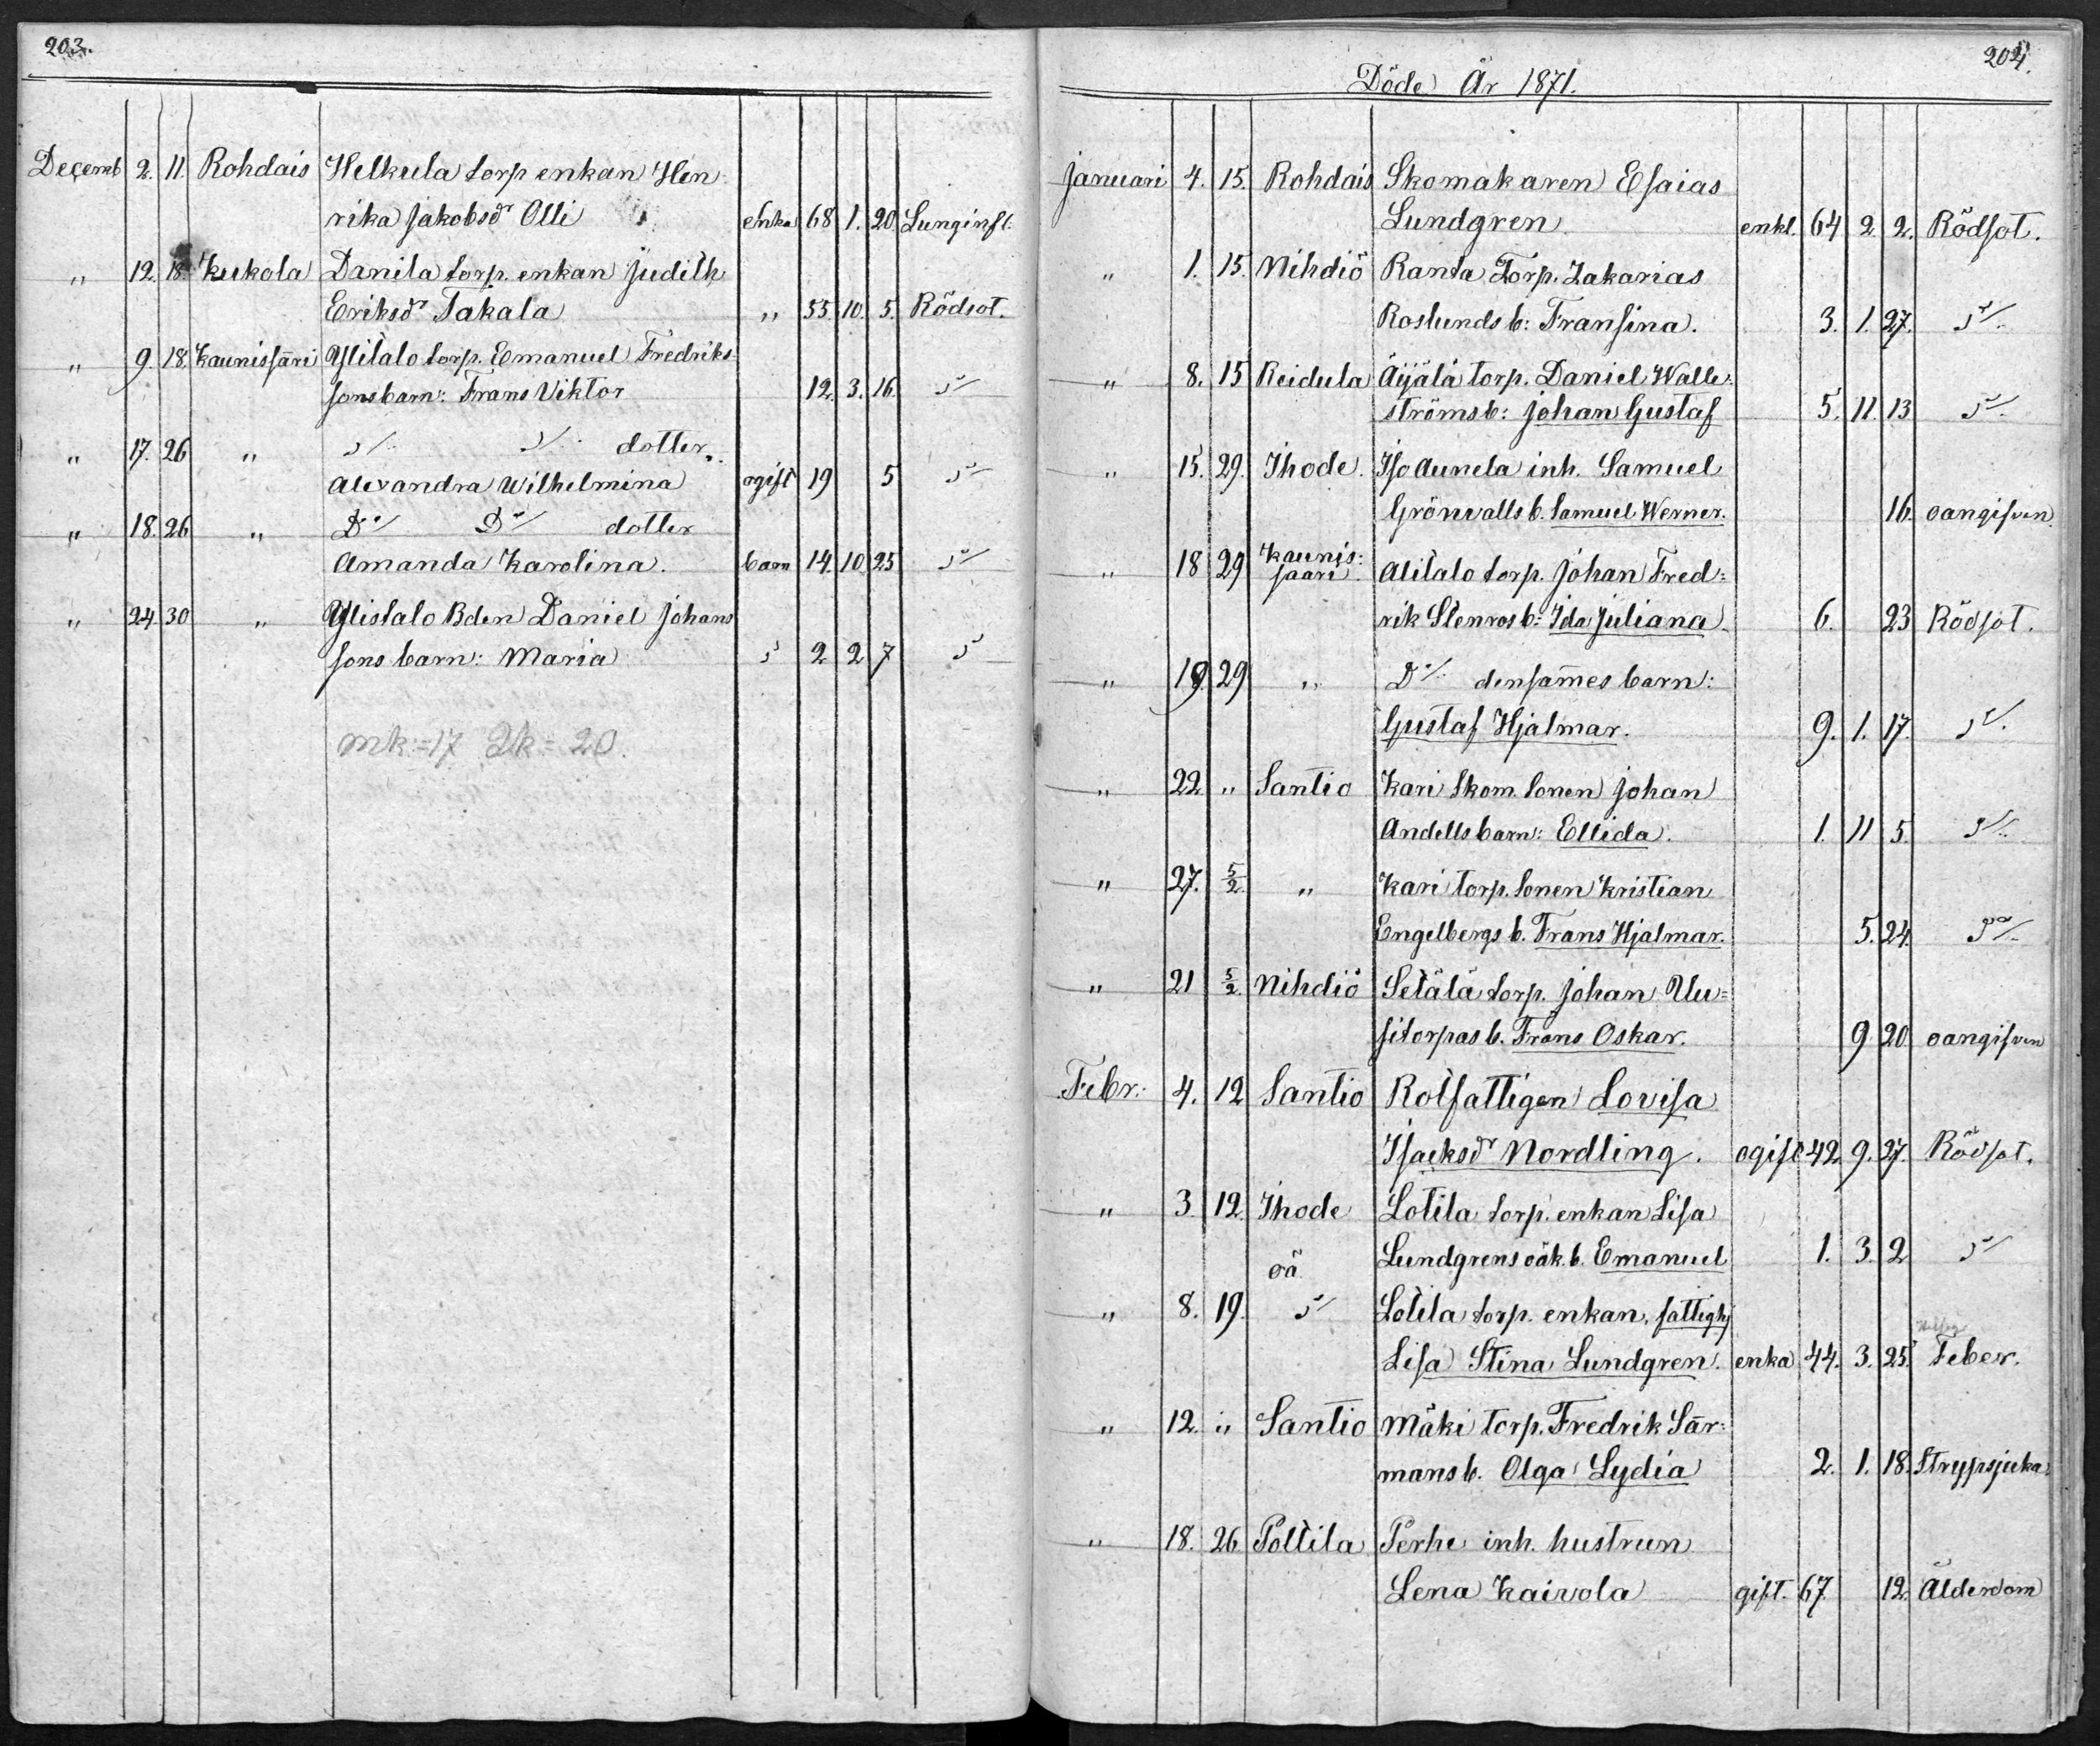 203.
Decemb 2. 11. Rohdais Helkula torp enkan Hen
rika Jakobsdr Olli enka 68 1. 20 Lunginfl:
" 12. 18. Kukola Danila torp. enkan Judith
Eriksdr Takala " 55. 10. 5. Rödsot.
" 9. 18. Kaunissäri Ylitalo torp. Emanuel Fredriks-
sons barn: Frans Viktor 12. 3. 16. D:o
" 17. 26 " D:o D:o dotter
Alexandra Wilhelmina ogift 19 5 D:o
" 18. 26 " D:o D:o dotter
Amanda Karolina. barn 14. 10. 25 D:o
" 24. 30 " Ylistalo Bden Daniel Johans
sons barn: Maria D:o 2 2 7 D:o
mk:=17 Qk=20.
204.
Döde År 1871.
Januari 4. 15. Rohdais Skomakaren Esaias
Lundgren enkl. 64 2 2. Rödsot.
" 1. 15. Nihdiö Ranta Torp. Zakarias
Roslunds b: Fransina. 3. 1. 27. D:o
" 8. 15 Reidula Äijälä torp. Daniel Walle-
ströms b: Johan Gustaf 5. 11. 13 D:o
" 15. 29. Ihode. Iso Aunela inh. Samuel
Grönvalls b. Samuel Werner. 16. oangifven
" 18 29 Kaunis-
saari. Alitalo torp. Johan Fred=
rik Stenros b: Ida Juliana 6. 23 Rödsot.
" 19 29 " D:o densammes barn:
Gustaf Hjalmar. 9. 1. 17. D:o
" 22 " Santio Kari Skom. Sonen Johan
Andells barn: Ellida. 1. 11 5. D:o
" 27. 5/2 " Kari torp. Sonen Kristian
Engelbergs b. Frans Hjalmar. 5. 24. D:o
" 21 5/2 Nihdiö Setälä torp. Johan Uu=
sitorpas b. Frans Oskar. 9 20 oangifven
Febr: 4. 12 Santio Rotfattigen Lovisa
Isacksdr Nordling. ogift 42. 9. 27. Rödsot.
" 3 12. Ihode Lotila torp. enkan Lisa
oä Lundgrens oäk. b. Emanuel 1. 3. 2 D:o
" 8. 19. D:o Lotila torp. enkan, fattighj
Lisa Stina Lundgren. enka 44. 3. 25. Feber.
" 12. " Santio Mäki torp. Fredrik Sär-
mans b. Olga Lydia 2. 1. 18. Strypsjuka.
" 18. 26 Pottila Perhe inh. hustrun
Lena Kaivola gift. 67 12. Ålderdom